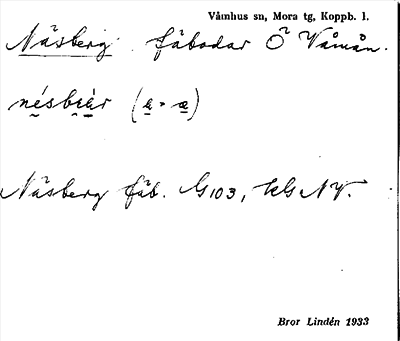 Våmhus sn, Mora tg, Koppb. l.
Näsberg fäbodar Ö Våmån.
nésbrèr (e = æ)
Näsberg fäb. G103, kG NV.
Bror Lindén 1933